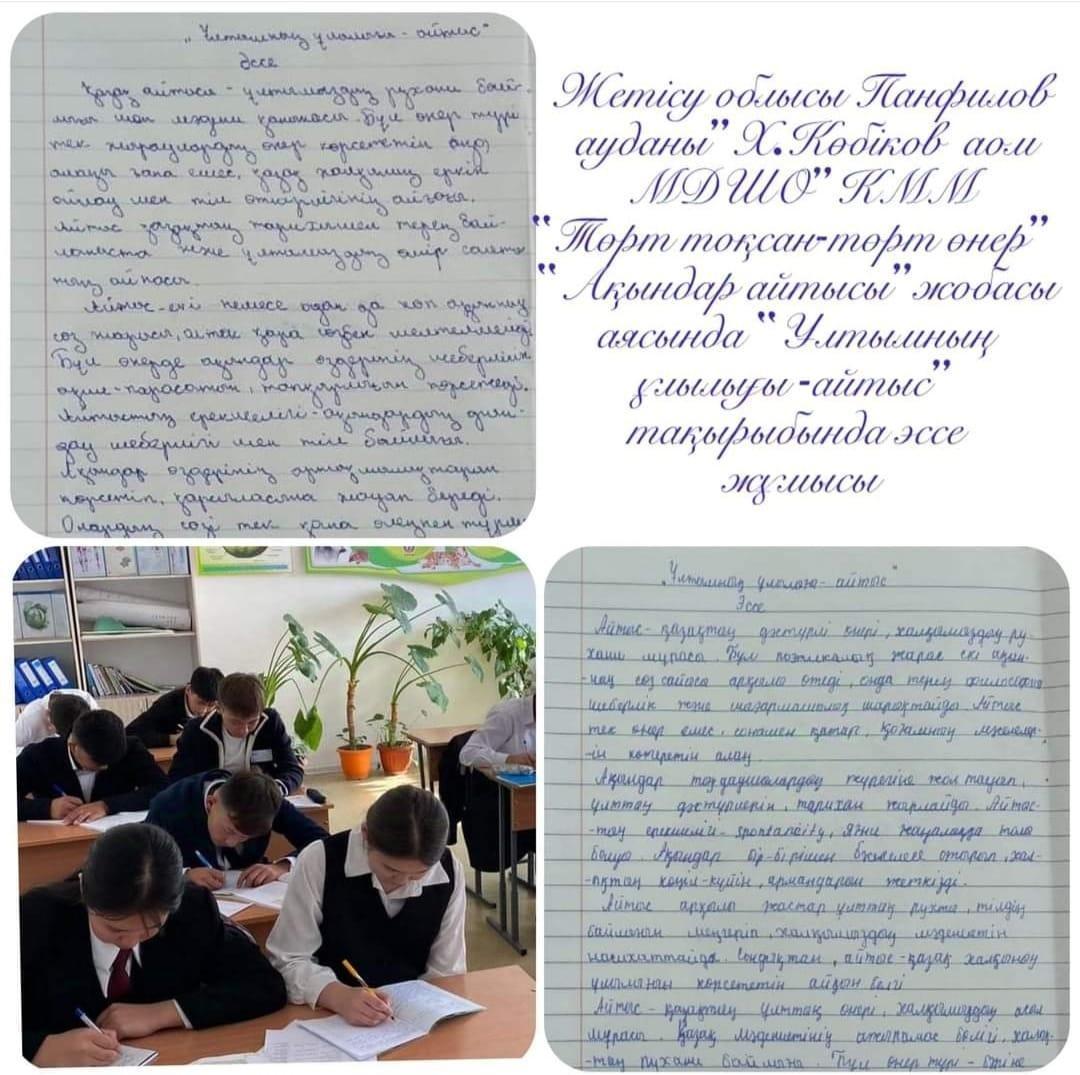 „Ұлтымның ұлылығы - айтыс"
Эссе
Қазақ айтысы - ұлтымыздың рухани бай-
лығы мен мәдени қазынасы. Бұл өнер түрі
тек жыраулардың өнер көрсететін
алаңы ғана емес, қазақ халқының еркін
ойлау мен тіл өткірлігінің айғағы.
Айтыс қазақтың тарихымен терең бай-
ланыста және ұлтымыздың өмір салты-
ның айнасы.
Айтыс-екі немесе одан да көп ақынның
сөз жарысы,
Бұл өнерде ақындар өздерінің шеберлігін
ақыл-парасатын, тапқырлығын көрсетеді.
Айтыстың ерекшелігі-ақындардың
шеберлігі мен тіл байлығы.
Ақындар өздерінің
көрсетіп, қарсыласына жауап береді.
Олардың сөзі тек қана өлеңмен
Жетісу облысы Панфилов
ауданы" Х.Көбіков аом
МДШО" КММ
"Төрт тоқсан-төрт өнер"
" Ақындар айтысы" жобасы
аясында " Ұлтымның
ұлылығы -айтыс"
тақырыбында эссе
жұмысы
„Ұлтымның ұлылығы - айтыс"
Эссе
Айтыс - қазақтың дәстүрлі өнері, халқымыздың ру-
хани мұрасы. Бұл поэзиялық жарыс екі ақын-
-ның сөз сайысы арқылы өтеді, онда терең философия
шеберлік және шығармашылық шарықтайды. Айтыс
тек өнер емес, сонымен қатар, қоғамның мәселелер-
-ін көтеретін алаң.
Ақындар тыңдаушылардың жүрегіне жол тауып,
ұлттың дәстүрлерін, тарихын жырлайды. Айтыс-
-тың ерекшелігі - spontaneity, яғни жаңалыққа толы
болуы. Ақындар бір-бірімен бәсекелесе отырып, хал-
-ықтың көңіл-күйін, армандарын жеткізді.
Айтыс арқылы жастар ұлттық рухты, тілдің
байлығын меңгеріп, халқымыздың мәдениетін
насихаттайды. Сондықтан, айтыс - қазақ халқының
ұлылығын көрсететін айқын белгі
Айтыс - қазақтың ұлттық өнері, халқымыздың асыл
мұрасы. Қазақ мәдениетінің ажырамас бөлігі, халық-
-тың рухани байлығы. Бұл өнер түрі -